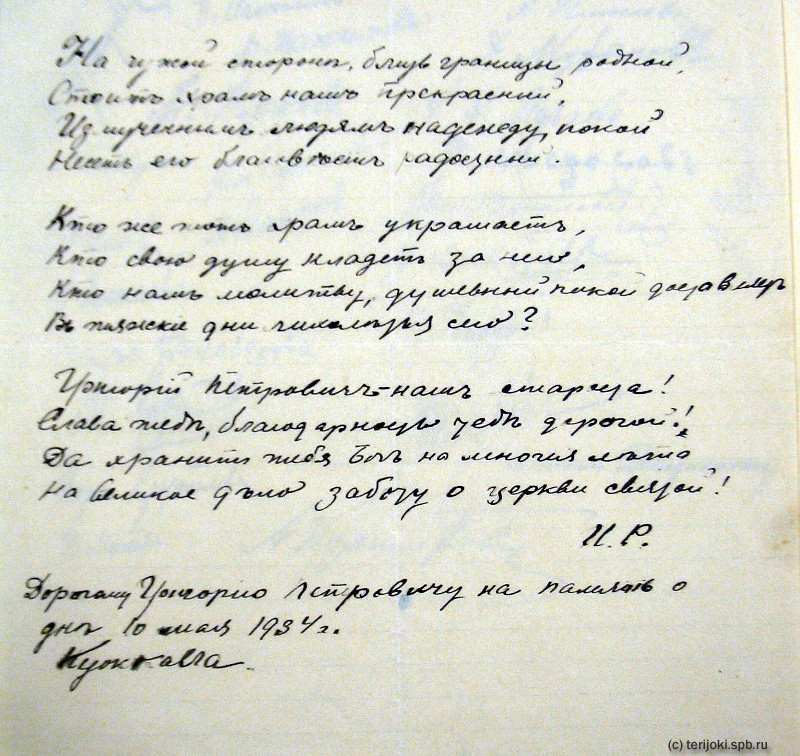 На чужой сторонѣ, близъ границы родной,
Стоитъ храмъ нашъ прекрасный,
Измученнымъ людямъ надежду, покой
Несетъ его благовѣстъ радостный.
Кто же тотъ храмъ украшаетъ,
Кто свою душу кладетъ за него,
Кто намъ молитву, душевный покой доставляетъ
Въ тяжкіе дни
Григорій Петровичъ – нашъ староста!
Слава тебѣ, благодарность тебѣ дорогой!
Да хранитъ тебя Богъ на многія лѣта
На великое дѣло заботу о церкви святой!
И. Р.
Дорогому Григорію Петровичу на память о
днѣ 10 мая 1934 г.
Куоккала.
(c) terijoki.spb.ru